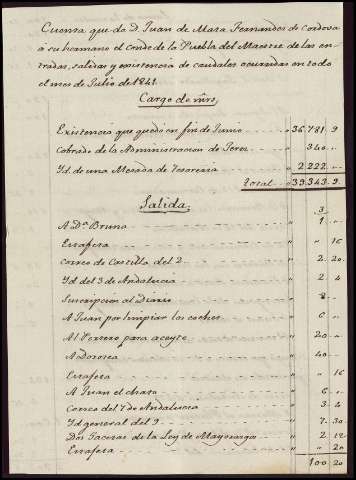 Cuenta que da D. Juan de Mata Fernandez de Cordova
á su hermano el Conde de la Puebla del Maestre de las en-
tradas, salidas y existencia de caudales ocurridas en todo
el mes de Julio de 1841.
Cargo de mrs.
Existencia que quedó en fin de Junio " 36,781 9
Cobrado de la Administracion de Jerez " 340 "
Yd. de una Mesada de Tesoreria " 2,222 "
Total " 39,343 9.
Salida.
3
A Da. Bruno " 1 "
Estafeta " " 16
Correo de Castilla del 2 " 2 20
Yd del 3 de Andalucia " 2 4
Suscripcion al Diario " 8 "
A Juan por limpiar los coches " 6 "
Al Portero para aceyte " 20 "
A Dorotea " 40 "
Estafeta " " 16
A Juan el chato " 6 "
Correo del 7 de Andalucia " 3 4
Yd general del 9 " 7 30
Dos Gacetas de la Ley de Mayorazgo " 2 12
Estafeta " " 20
100 20